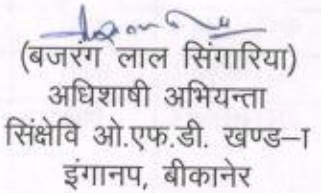 (बजरंग लाल सिंगारिया)
अधिशाषी अभियन्ता
सिंक्षेवि ओ.एफ.डी. खण्ड–I
इंगानप, बीकानेर